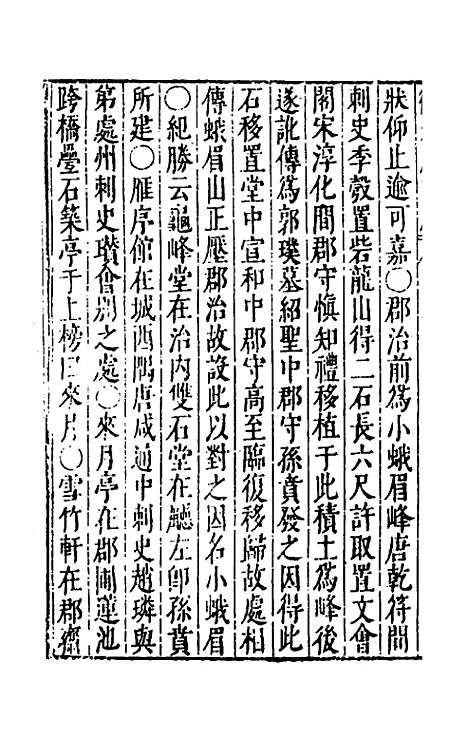 狀仰止逾可嘉○郡治前爲小蛾眉峰唐乾符間
刺史季瑴置砦龍山得二石長六尺許取置文會
閣宋淳化間郡守愼知禮移植于此積土爲峰後
遂訛傳爲郭璞墓紹聖中郡守孫賁發之因得此
石移置堂中宣和中郡守高至臨復移歸故處相
傳蛾眉山正壓郡治故設此以對之因名小蛾眉
○紀勝云龜峰堂在治內雙石堂在廳左卽孫賁
所建○雁序館在城西隅唐咸通中刺史趙璘與
弟處州刺史瓚會別之處○來月亭在郡圃蓮池
跨橋疊石築亭于上榜曰來月○雪竹軒在郡齋